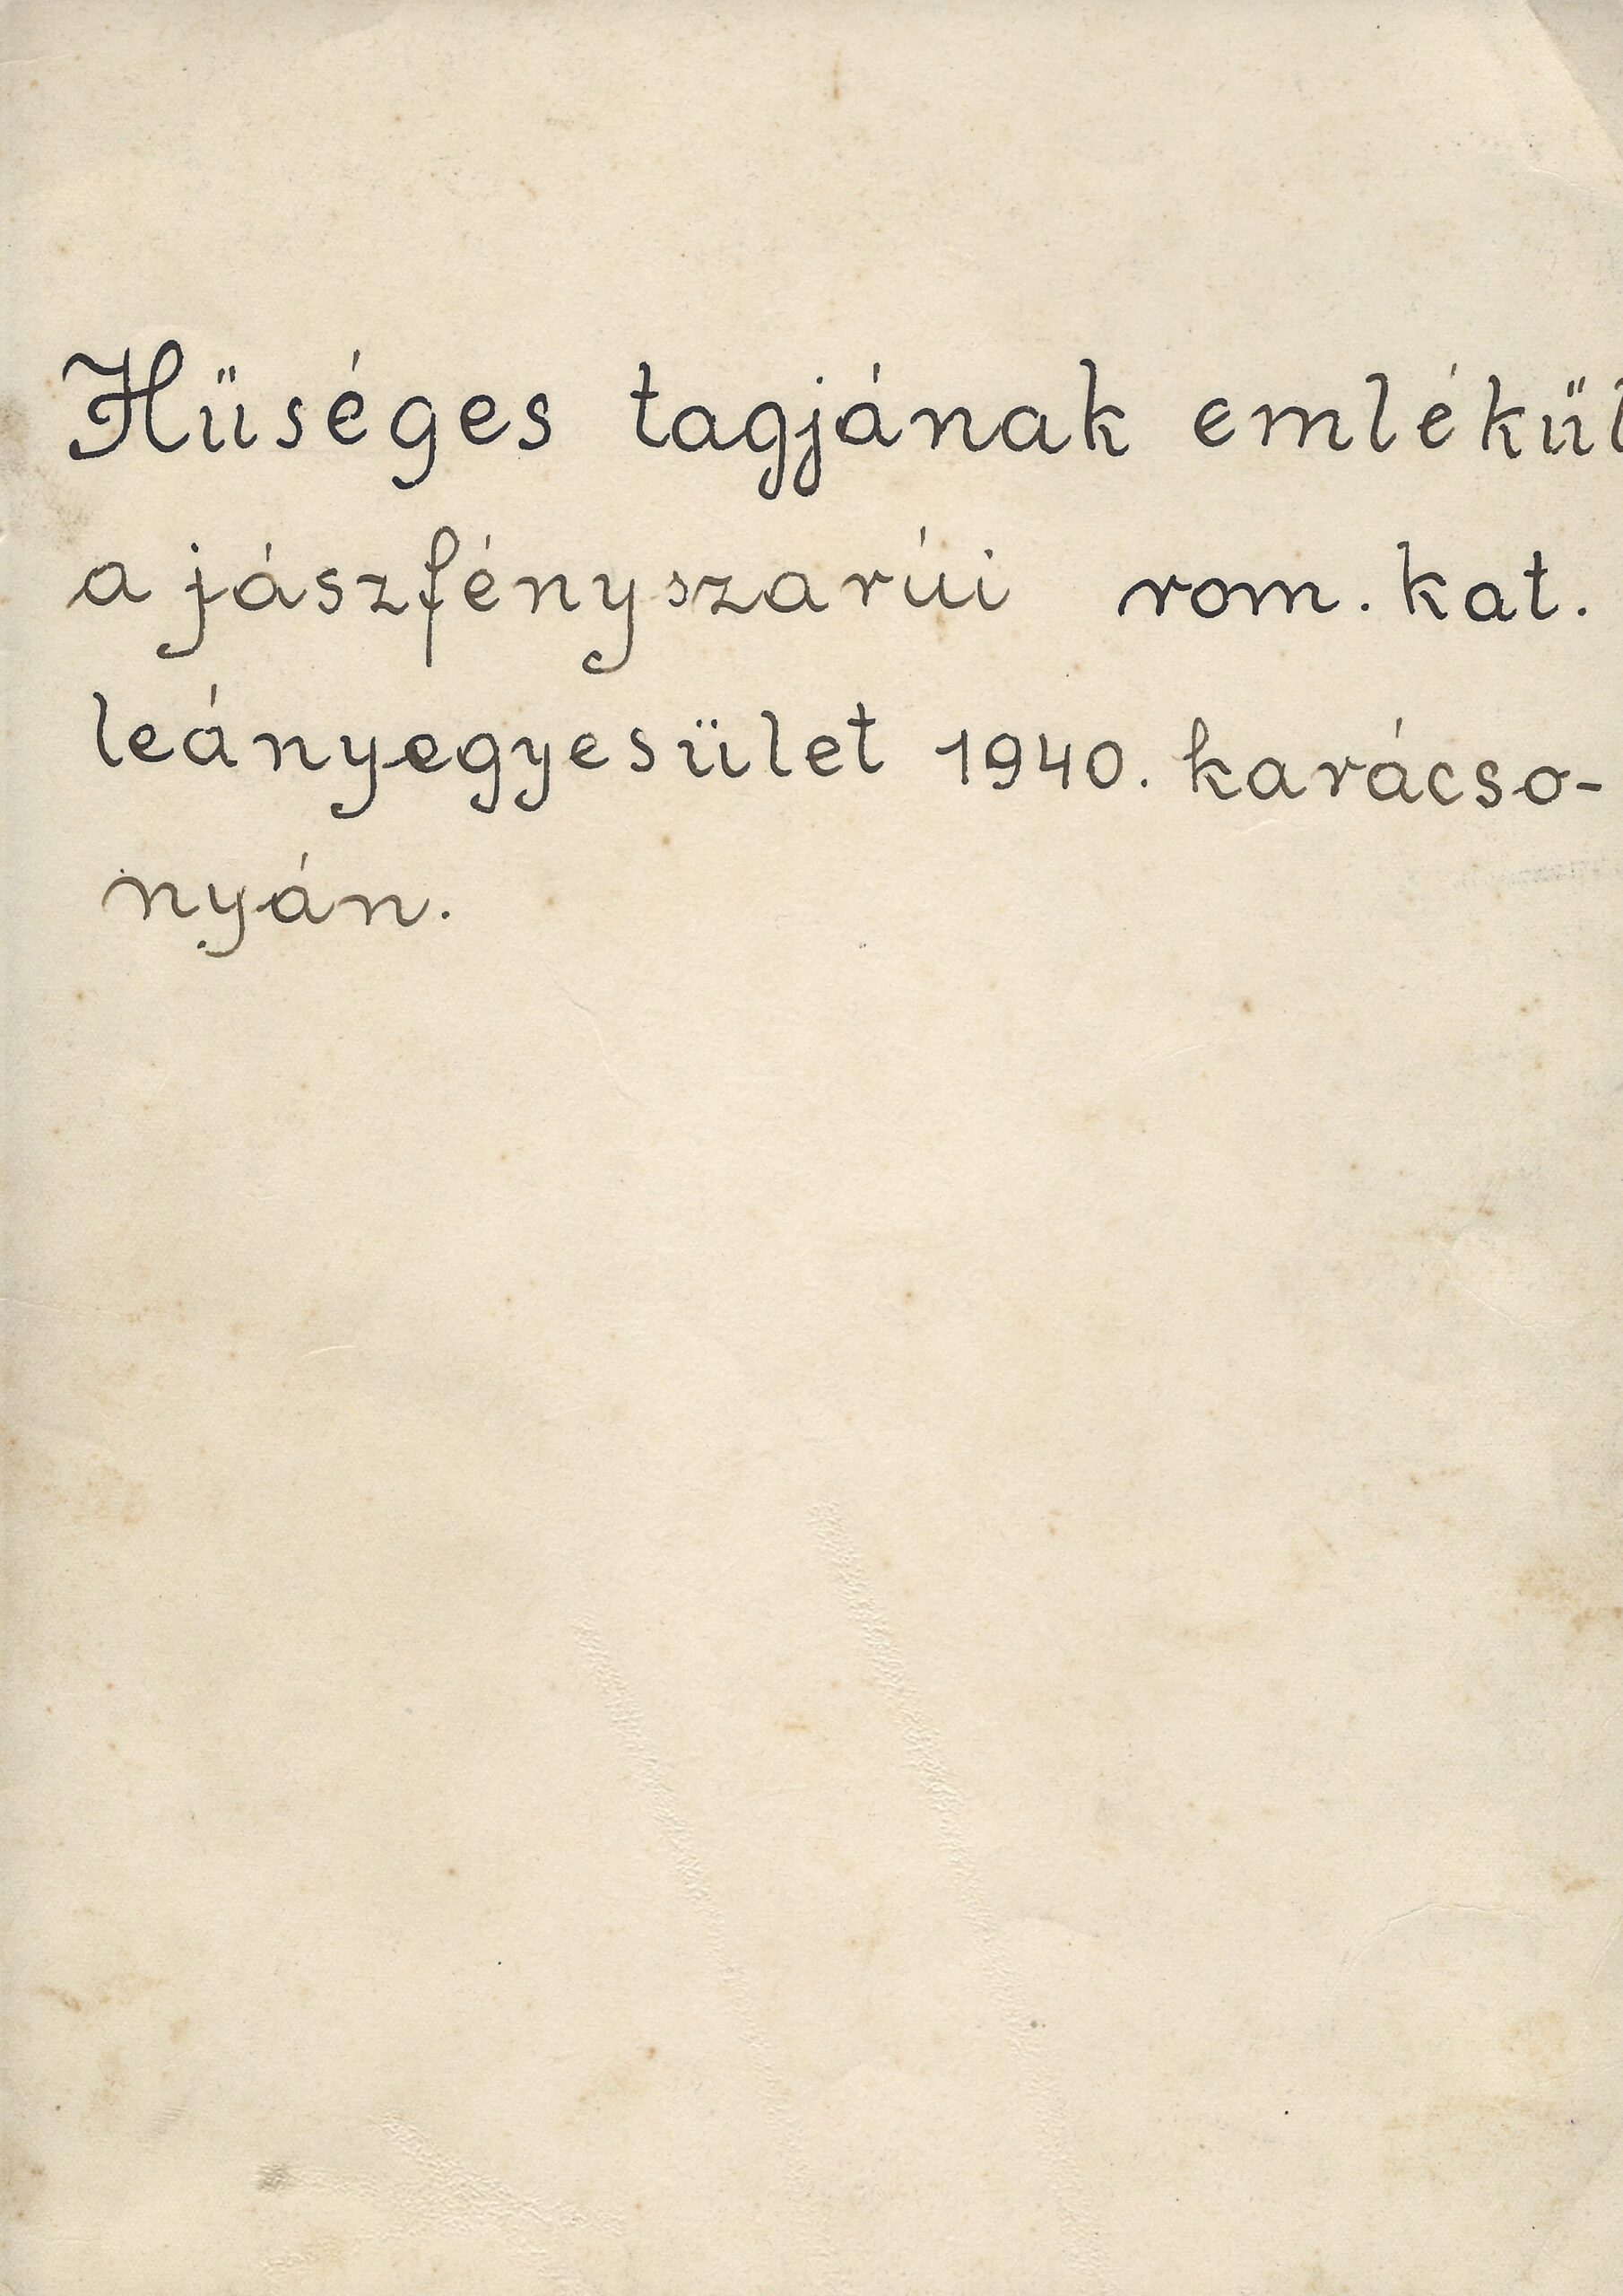 Hűséges tagjának emlékül
a jászfényszarúi rom. kat.
leányegyesület 1940. karácso-
nyán.